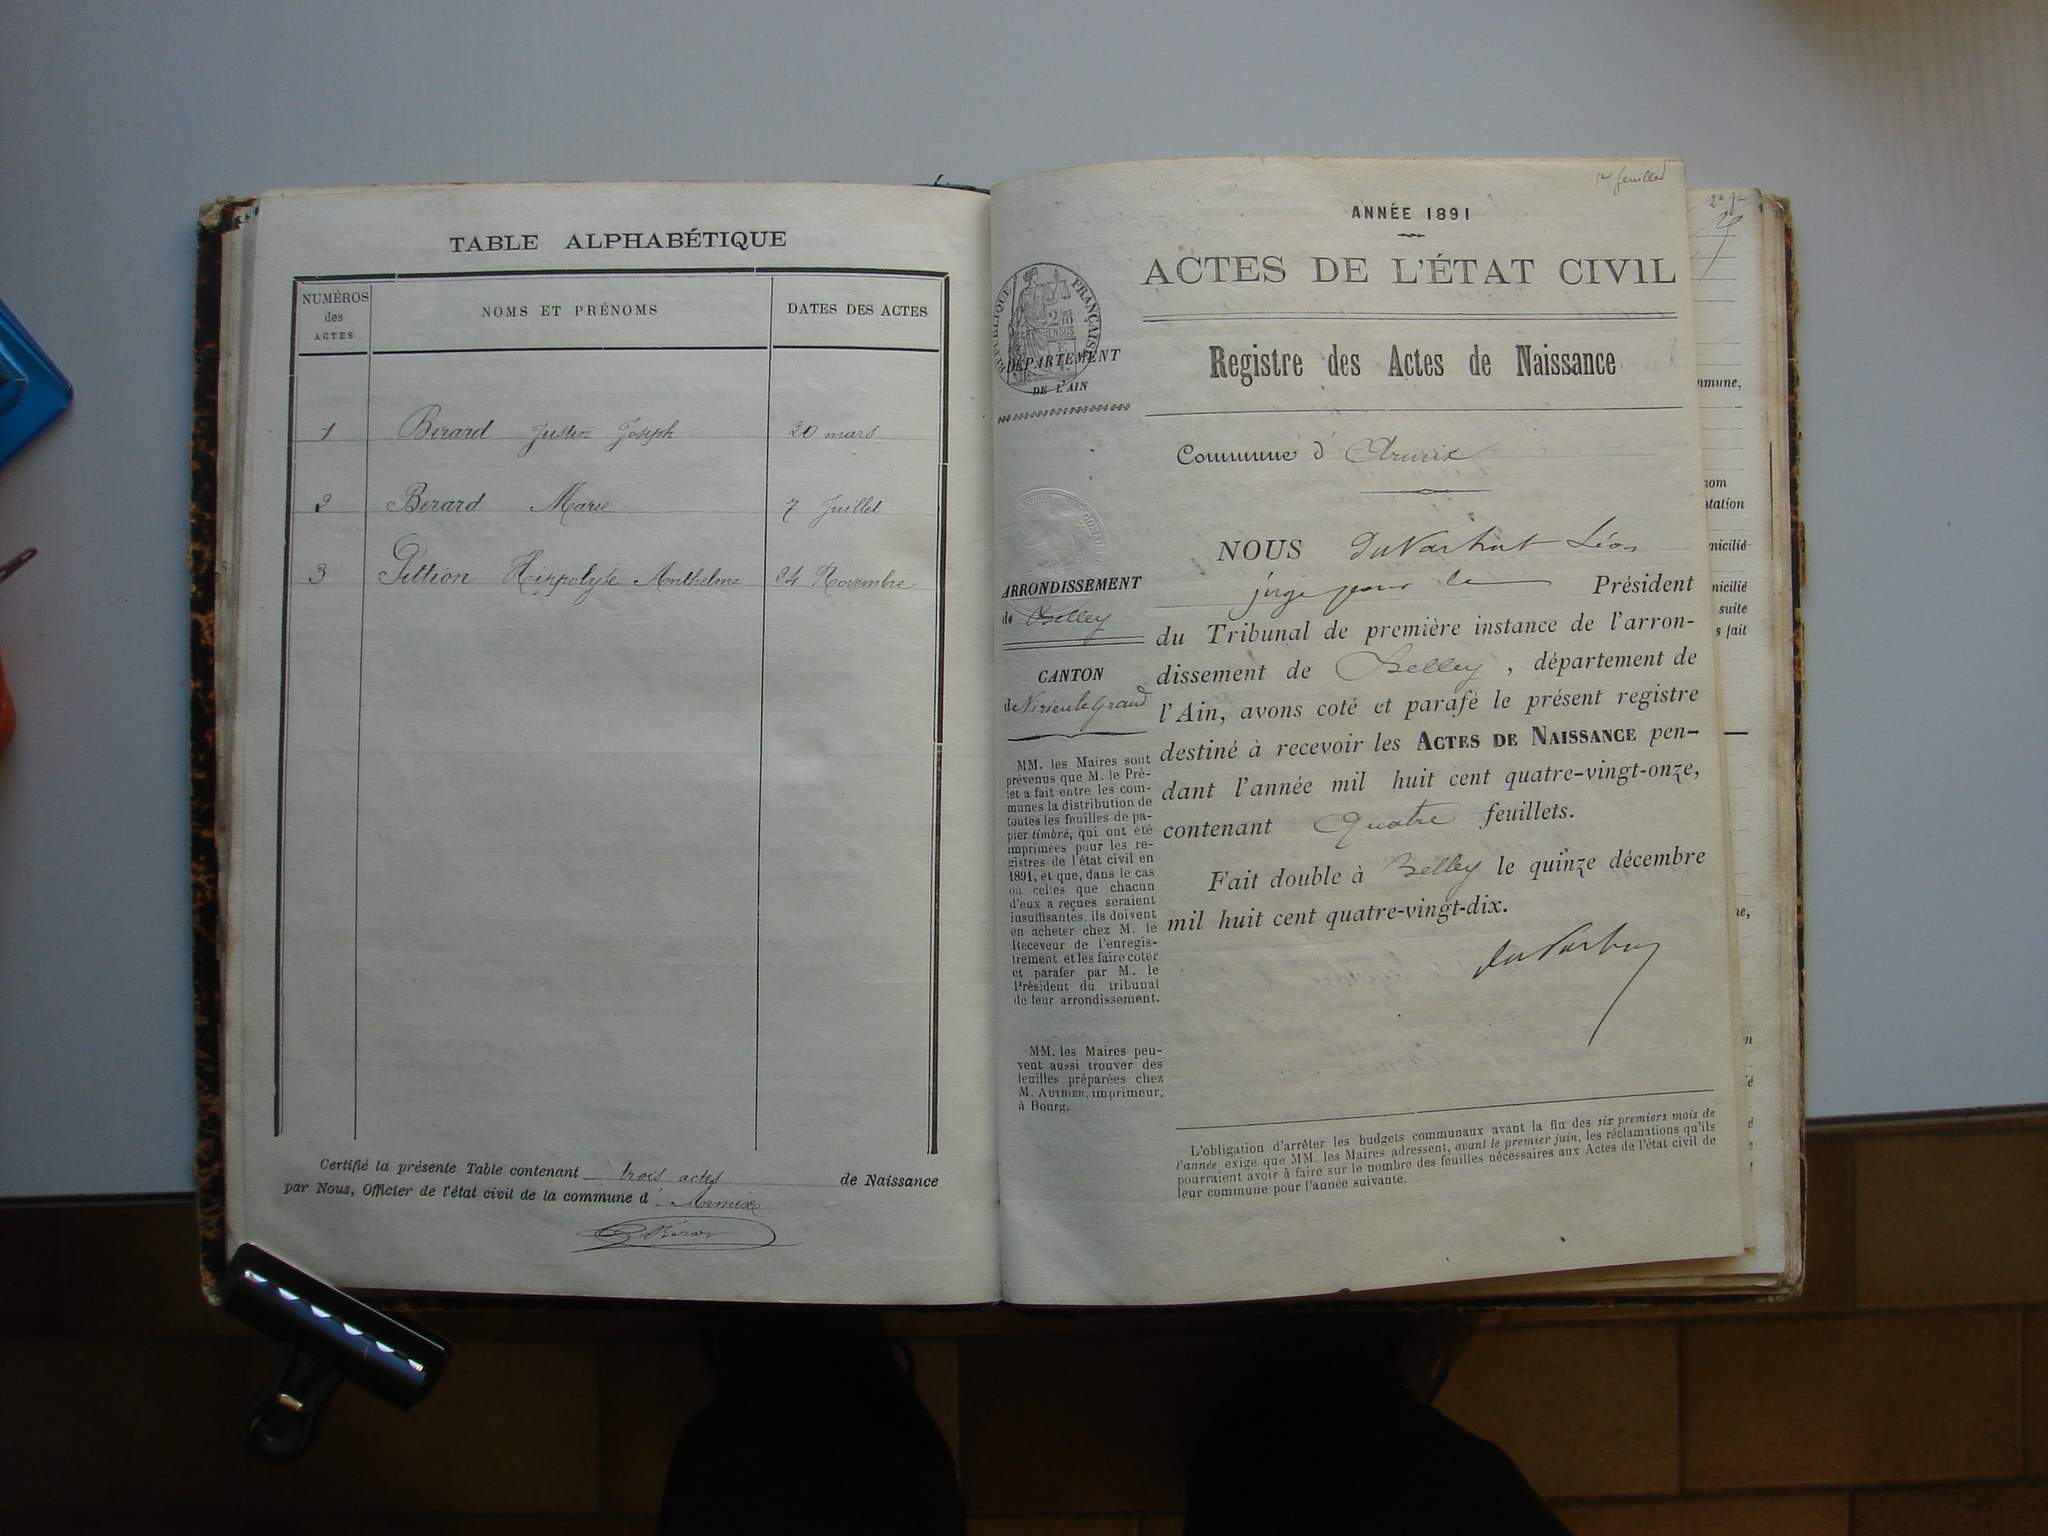 TABLE ALPHABÉTIQUE
NUMÉROS
des
ACTES
NOMS ET PRÉNOMS
DATES DES ACTES
1 Bérard Justin Joseph 20 mars
2 Bérard Marie 7 Juillet
3 Pittion Hippolyte Anthelme 24 Novembre
Certifié la présente Table contenant trois actes de Naissance
par Nous, Officier de l'état civil de la commune d' Armix
1er feuillet
ANNÉE 1891
ACTES DE L'ÉTAT CIVIL
RÉPUBLIQUE FRANÇAISE
DÉPARTEMENT
DE L'AIN
Registre des Actes de Naissance
Commune d' Armix
ARRONDISSEMENT
de Belley
CANTON
de Virieu le Grand
MM. les Maires sont
prévenus que M. le Pré-
fet a fait entre les com-
munes la distribution de
toutes les feuilles de pa-
pier timbré, qui ont été
imprimées pour les re-
gistres de l'état civil en
1891, et que, dans le cas
où celles que chacun
d'eux a reçues seraient
insuffisantes, ils doivent
en acheter chez M. le
Receveur de l'enregis-
trement et les faire coter
et parafer par M. le
Président du tribunal
de leur arrondissement.
MM. les Maires peu-
vent aussi trouver des
feuilles préparées chez
M. AUTHIER, imprimeur,
à Bourg.
NOUS Léon
juge pour le Président
du Tribunal de première instance de l'arron-
dissement de Belley, département de
l'Ain, avons coté et parafé le présent registre
destiné à recevoir les ACTES DE NAISSANCE pen-
dant l'année mil huit cent quatre-vingt-onze,
contenant Quatre feuillets.
Fait double à Belley le quinze décembre
mil huit cent quatre-vingt-dix.
L'obligation d'arrêter les budgets communaux avant la fin des six premiers mois de
l'année exige que MM. les Maires adressent, avant le premier juin, les réclamations qu'ils
pourraient avoir à faire sur le nombre des feuilles nécessaires aux Actes de l'état civil de
leur commune pour l'année suivante.